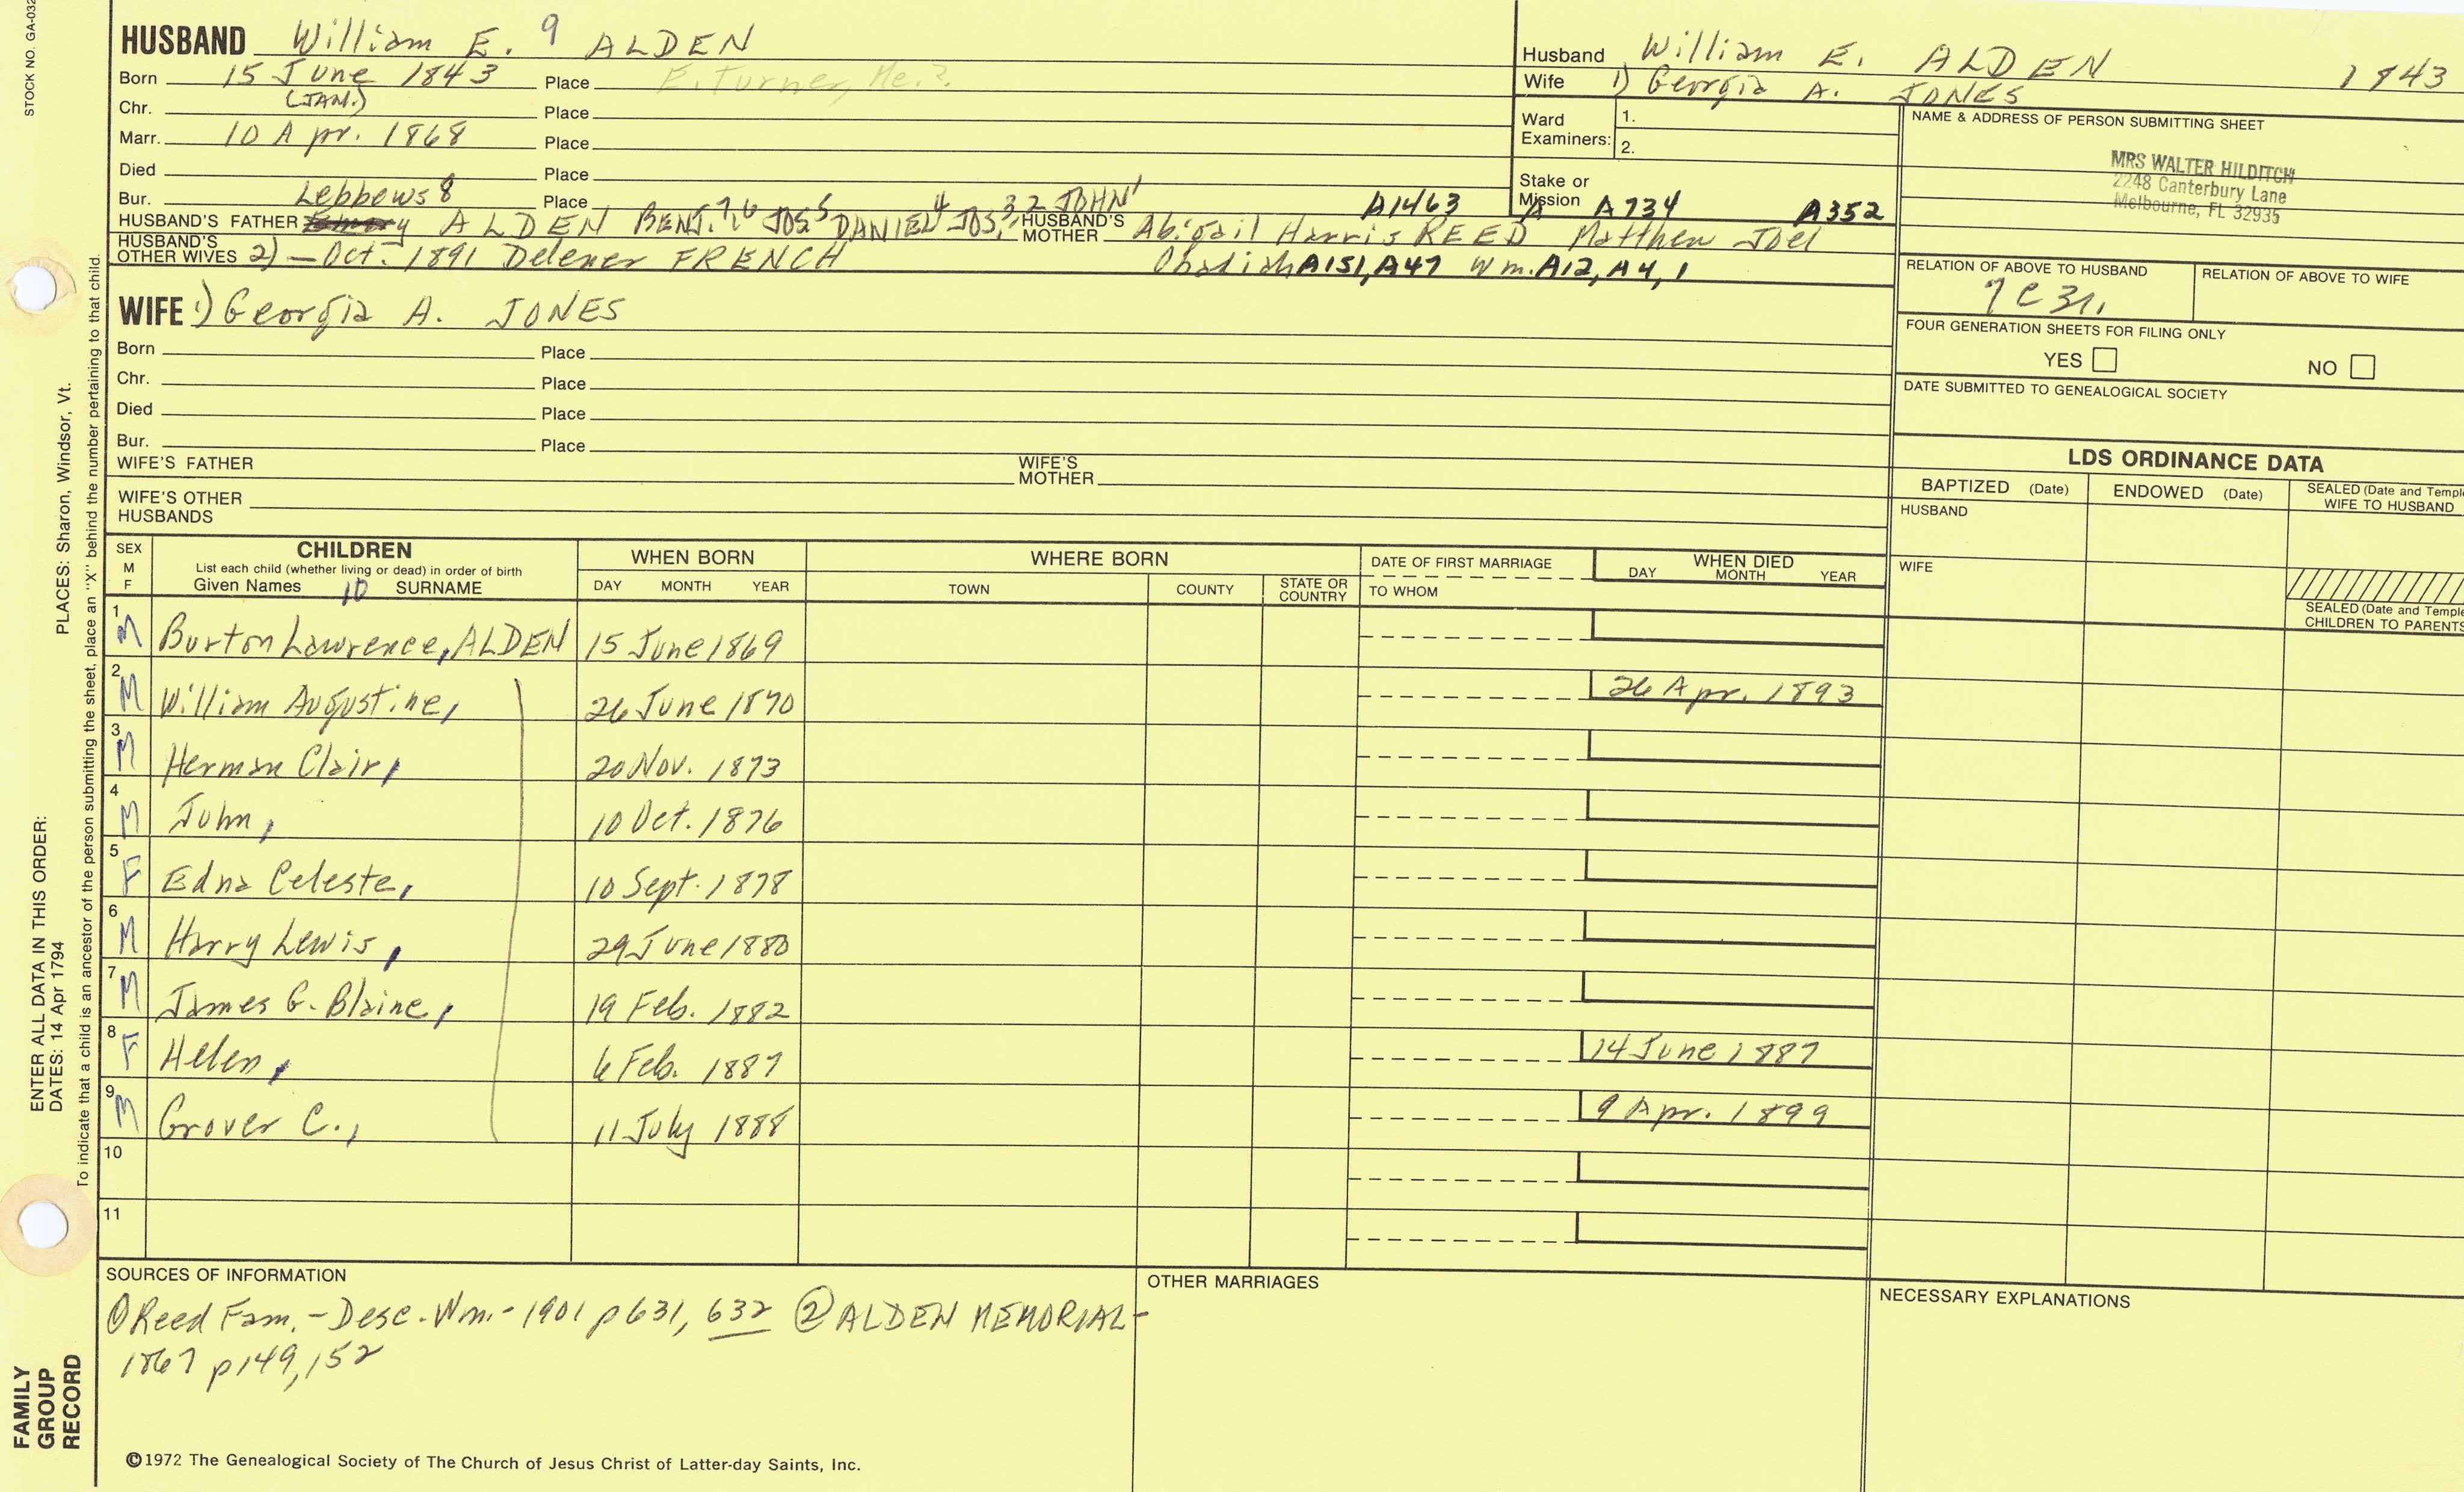 STOCK NO. GA-032
HUSBAND William E. 9 ALDEN
Born 15 June 1843 Place E. Turner, Me.?
(JAN.)
Chr. Place
Marr. 10 Apr. 1868 Place
Died Place
Bur. Place
Lebbews 8
HUSBAND'S FATHER ALDEN BENJ. 7,6 JOS 5 DANIEL 4 JOS. 3 2 JOHN 1 HUSBAND'S MOTHER Abigail Harris REED Matthew Joel
A1463 A A734 A352
HUSBAND'S OTHER WIVES 2) - Oct. 1891 Delener FRENCH Obadiah A151, A47 Wm. A12, A4, 1
Husband William E. ALDEN 1843
Wife 1) Georgia A. JONES
Ward Examiners: 1.
2.
Stake or Mission
NAME & ADDRESS OF PERSON SUBMITTING SHEET
MRS WALTER HILDITCH
2248 Canterbury Lane
Melbourne, FL 32935
RELATION OF ABOVE TO HUSBAND RELATION OF ABOVE TO WIFE
FOUR GENERATION SHEETS FOR FILING ONLY
YES NO
DATE SUBMITTED TO GENEALOGICAL SOCIETY
WIFE 1) Georgia A. JONES
Born Place
Chr. Place
Died Place
Bur. Place
WIFE'S FATHER WIFE'S MOTHER
WIFE'S OTHER HUSBANDS
LDS ORDINANCE DATA
BAPTIZED (Date) ENDOWED (Date) SEALED (Date and Temple
WIFE TO HUSBAND
HUSBAND
WIFE
SEALED (Date and Temple
CHILDREN TO PARENTS
SEX M F CHILDREN WHEN BORN WHERE BORN DATE OF FIRST MARRIAGE WHEN DIED
List each child (whether living or dead) in order of birth
Given Names 10 SURNAME DAY MONTH YEAR TOWN COUNTY STATE OR COUNTRY TO WHOM DAY MONTH YEAR
1 M Burton Lawrence, ALDEN 15 June 1869
2 M William Augustine, 26 June 1870 26 Apr. 1893
3 M Herman Clair, 20 Nov. 1873
4 M John, 10 Oct. 1876
5 F Edna Celeste, 10 Sept. 1878
6 M Harry Lewis, 29 June 1880
7 M James G. Blaine, 19 Feb. 1882
8 F Helen, 6 Feb. 1887 14 June 1887
9 M Grover C., 11 July 1888 9 Apr. 1899
10
11
SOURCES OF INFORMATION
① Reed Fam. - Desc. Wm. - 1901 p 631, 632 ② ALDEN MEMORIAL -
1867 p 149, 152
OTHER MARRIAGES
NECESSARY EXPLANATIONS
©1972 The Genealogical Society of The Church of Jesus Christ of Latter-day Saints, Inc.
FAMILY GROUP RECORD
ENTER ALL DATA IN THIS ORDER:
DATES: 14 Apr 1794
PLACES: Sharon, Windsor, Vt.
To indicate that a child is an ancestor of the person submitting the sheet, place an "X" behind the number pertaining to that child.